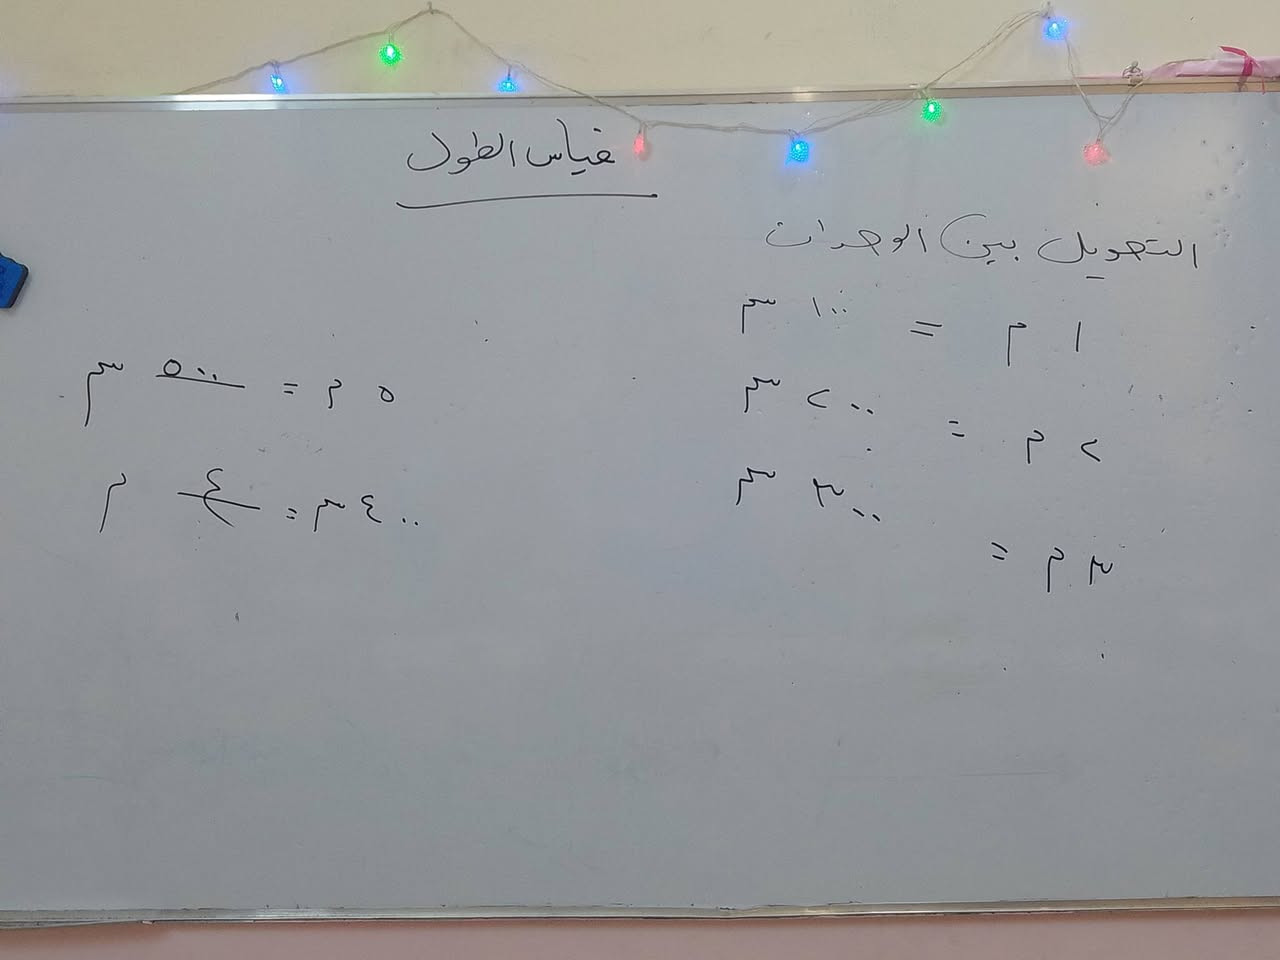 قياس الطول
التحويل بين الوحدات
١ م = ١٠٠ سم
٢ م = ٢٠٠ سم
٣ م = ٣٠٠ سم
٥ م = ٥٠٠ سم
٤٠٠ سم = ٤ م